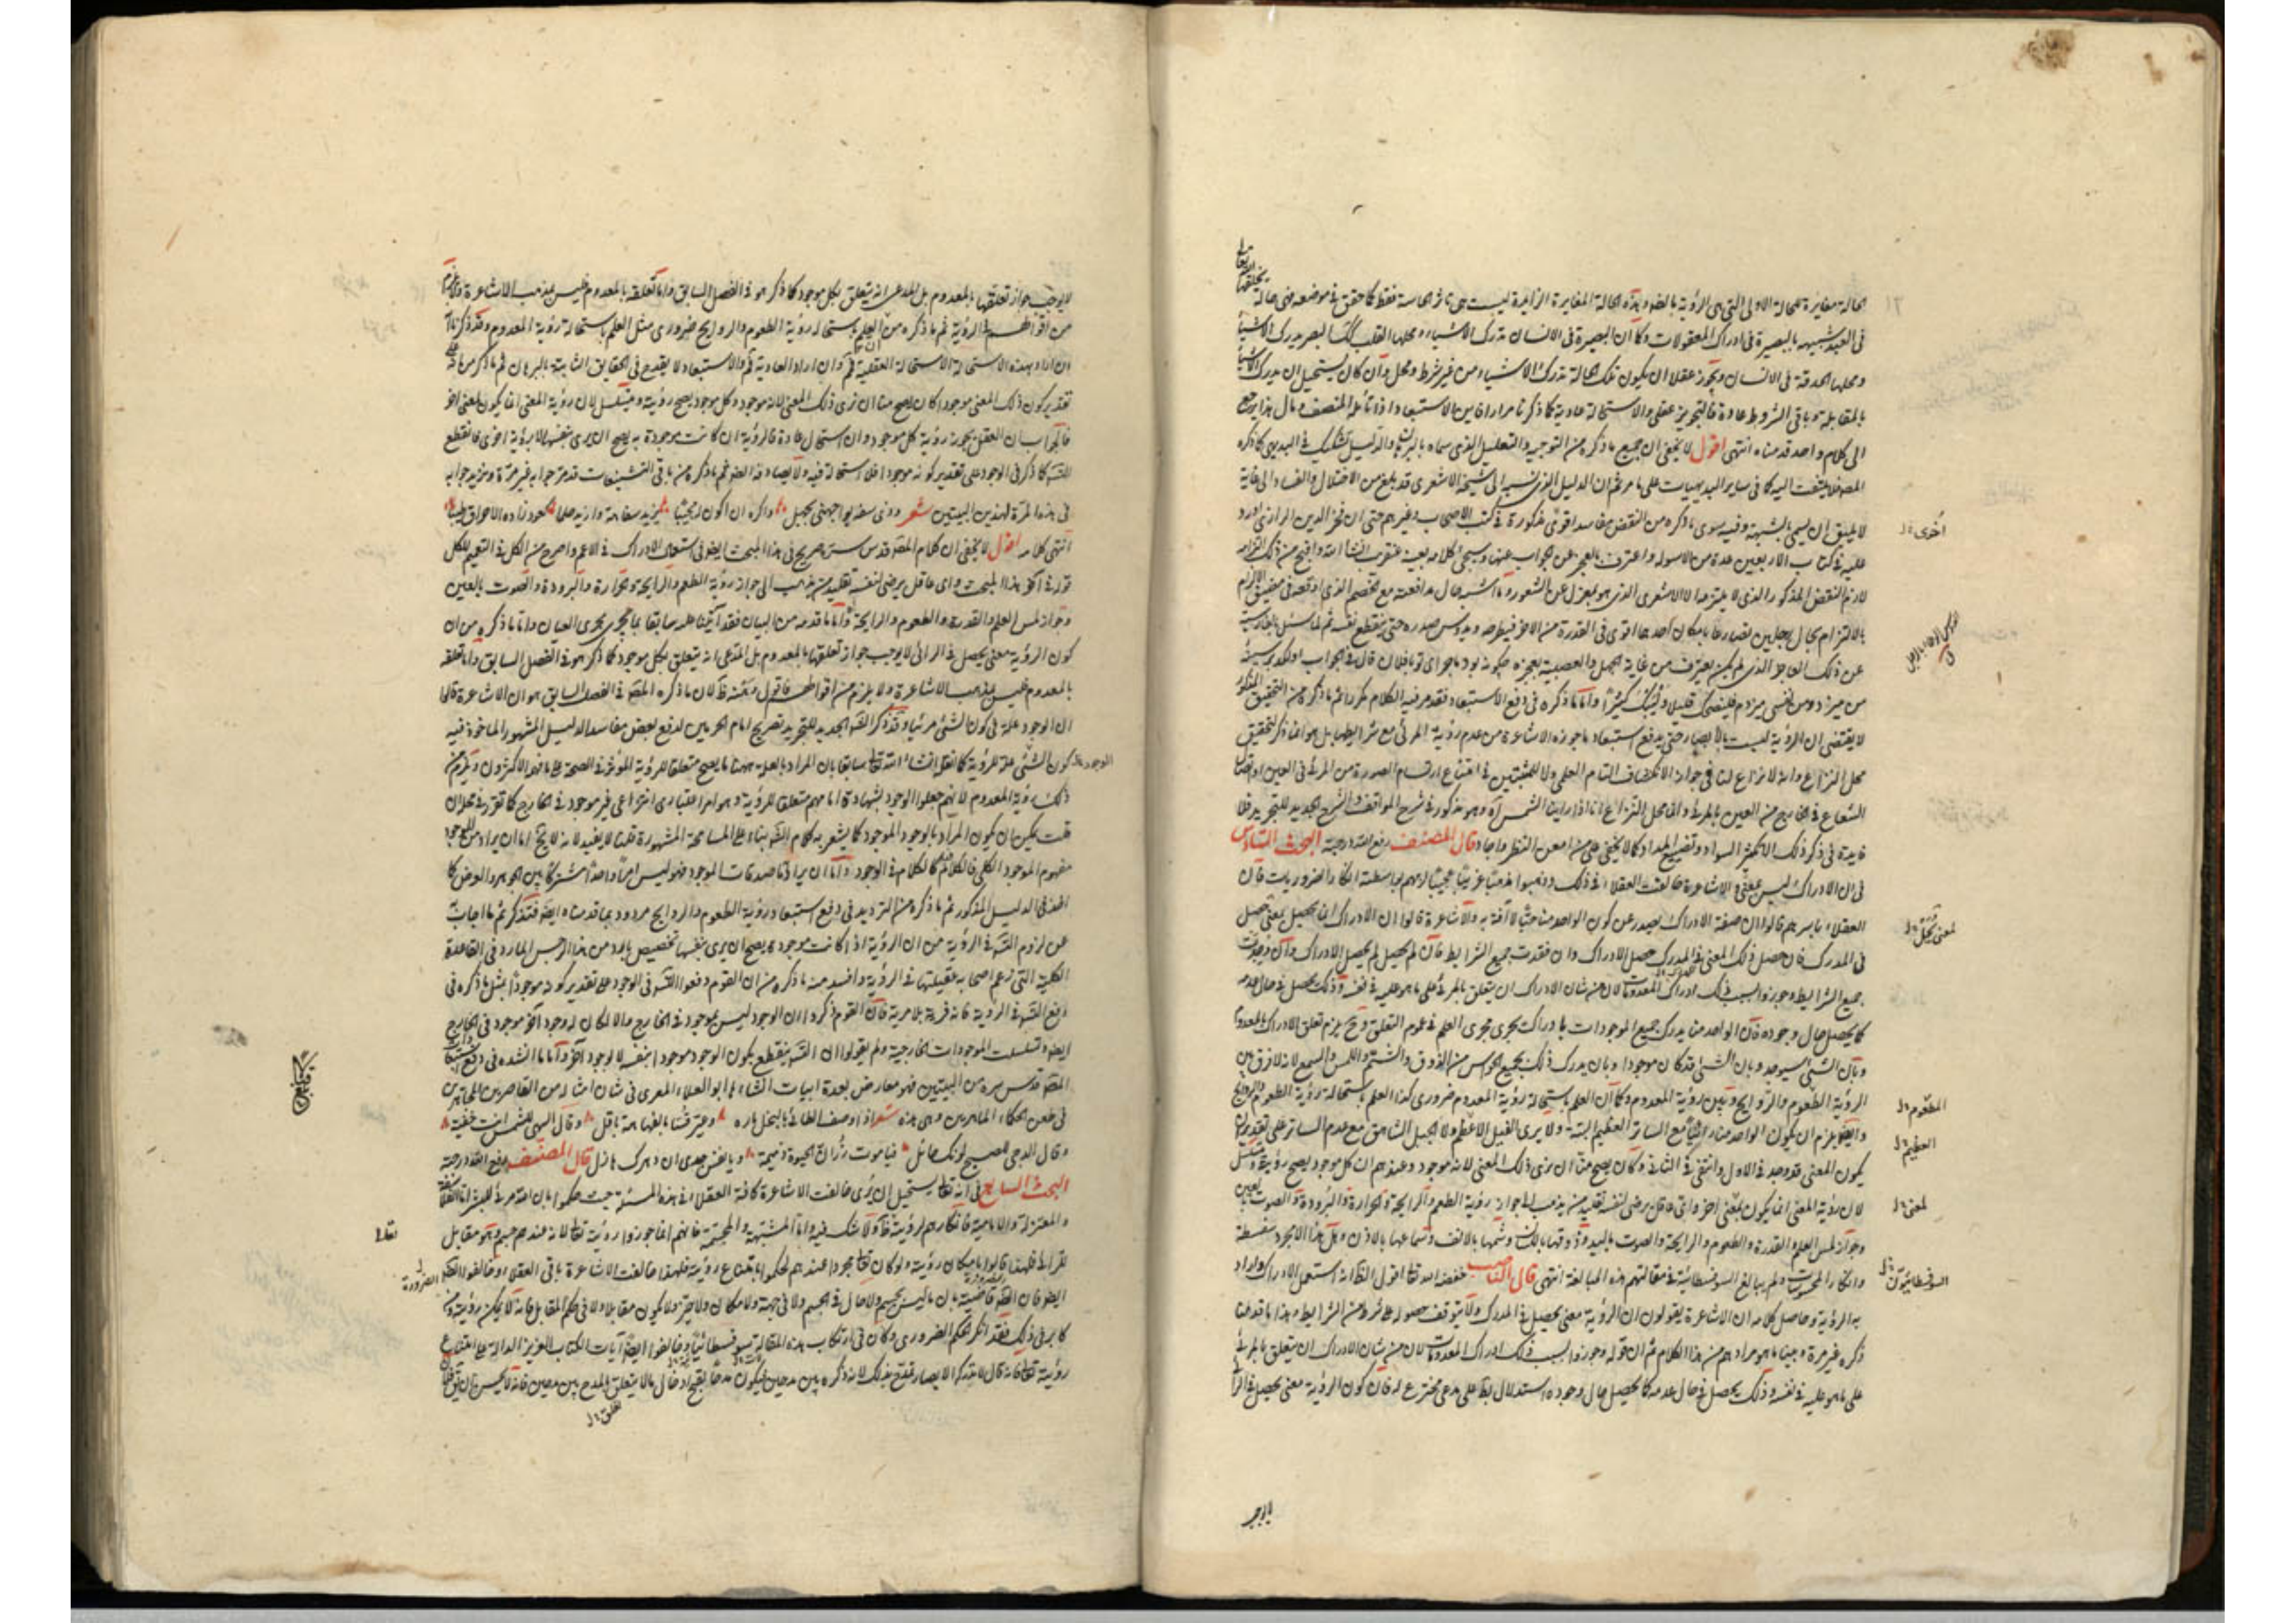 الحالة مغايرة للحالة الاولى التي هي الرؤية بالضرورة وهذه الحالة المغايرة الزايدة ليست هي تاثر الحاسة فقط كما حقق في موضعه فهي حالة
في العبد شبيهة بالبصيرة في ادراك المعقولات وكما ان البصيرة في الانسان تدرك الاشياء ومحلها القلب كذلك البصر يدرك الاشياء
ومحلها الحدقة في الانسان ويجوز عقلا ان يكون تلك الحالة تدرك الاشياء من غير شرط ومحل وان كان يستحيل ان يدرك الاشياء
بالمقابلة وباقي الشروط عادة فالتجويز عقلي والاستحالة عادية كما ذكرنا مرارا فاين الاستبعاد اذا تأمله المنصف ومآل هذا يرجع
الى كلام واحد قدمناه انتهى اقول لا يخفى ان جميع ما ذكره من التوجيه والتعليل الذي سماه بالبرهان والدليل تشكيك في البديهي كما ذكره
المصنف فلا يلتفت اليه كما في ساير البديهيات على ما مر ثم ان الدليل الذي نسبه الى شيخه الاشعري قد بلغ من الاختلال والفساد الى غاية
لا يليق ان يسمى بالشبهة وفيه سوى ما ذكره من النقض مفاسد اقوى مذكورة في كتب الاصحاب وغيرهم حتى ان فخر الدين الرازي اورد
عليه في كتاب الاربعين عدة من الاسولة واعترف بالعجز عن الجواب عنها وسيجئ كلامه بعينه عنقريب انشا الله واقبح من ذلك التزام
لازم النقض المذكور الذي لا يلتزمه الا الاشعري الذي هو بمعزل عن الشعور وما اشبه حال مدافعته مع الخصم الذي اوقعه في مضيق الالزام
عن ذلك العاجز الذي لم يكن يعترف من غاية الجهل والعصبية بعجزه
لا يقتضي ان الرؤية ليست بالابصار حتى يدفع استبعاد ما جوزه الاشاعرة من عدم رؤية المرئي مع شرايطها بل هو انما ذكر لتحقيق
محل النزاع وانه لا نزاع لنا في جواز الانكشاف التام العلمي ولا للمثبتين في امتناع ارتسام الصورة من المرئي في العين او اتصال
الشعاع في الخارج من العين بالمرئي وانما محل النزاع انا اذا راينا الشمس آه وهو مذكور في شرح المواقف والشرح الجديد للتجريد فلا
فايدة في ذكر ذلك الا تكثير السواد وتضييع المداد كما لا يخفى على من امعن النظر واجاد قال المصنف رفع الله درجته البحث السادس
في ان الادراك ليس لمعنى والاشاعرة خالفت العقلاء في ذلك وذهبوا مذهبا غريبا عجيبا لزمهم بواسطته انكار الضروريات فان
العقلاء باسرهم قالوا ان صفة الادراك تصدر عن كون الواحد منا حيا لا آفة به والاشاعرة قالوا ان الادراك انما يحصل لمعنى حصل
في المدرك فان حصل ذلك المعنى في المدرك حصل الادراك وان فقدت جميع الشرايط فان لم يحصل لم يحصل الادراك وان وجدت
جميع الشرايط وجوزوا بسبب ذلك ادراك المعدومات لان من شان الادراك ان يتعلق بالمرئي على ما هو عليه في نفسه وذلك يحصل في حال عدمه
كما يحصل حال وجوده فان الواحد منا يدرك جميع الموجودات بادراك يجري مجرى العلم في عموم التعلق وح يلزم تعلق الادراك بالمعدوم
وبان الشئ سيوجد وبان الشئ قد كان موجودا وبان يدرك ذلك بجميع الحواس من الذوق والشم واللمس والسمع لانه لا فرق بين
الرؤية الطعوم والروايح وبين رؤية المعدوم وكما ان العلم باستحالة رؤية المعدوم ضروري كذا العلم باستحالة رؤية الطعوم والروايح
وايضا يلزم ان يكون الواحد منا رائيا مع الساتر العظيم البتة ولا يرى الفيل الاعظم ولا الجبل الشاهق مع عدم الساتر على تقدير ان
يكون المعنى قد وجد في الاول وانتفى في الثاني وكان يصح منا ان نرى ذلك المعنى لانه موجود وعندهم ان كل موجود يصح رؤيته ويتسلسل
لان رؤية المعنى انما يكون لمعنى اخر واي عاقل يرضى لنفسه تقليد من يذهب الى جواز رؤية الطعم والرايحة والحرارة والبرودة والصوت بالعين
وجواز لمس العلم والقدرة والطعوم والرايحة والصوت باليد وذوقها باللسان وشمها بالانف وسماعها بالاذن وهل هذا الا مجرد سفسطة
وانكار المحسوسات ولم يبالغ السوفسطائية في مقالتهم هذه المبالغة انتهى قال الناصب خفضه الله تعالى اقول الظاهر انه استعمل الادراك واراد
به الرؤية وحاصل كلامه ان الاشاعرة يقولون ان الرؤية معنى يحصل في المدرك ولا يتوقف حصوله على شرط من الشرايط وهذا ما قدمنا
ذكره غير مرة وبينا ما هو مرادهم من هذا الكلام ثم ان قوله وجوزوا بسبب ذلك ادراك المعدومات لان من شان الادراك ان يتعلق بالمرئي
على ما هو عليه في نفسه وذلك يحصل في حال عدمه كما يحصل حال وجوده استدلال بط على مدعى مخترع له فان كون الرؤية معنى يحصل في الرائي
لا يوجب
اخرى
المطعوم
العظيم
لمعنى
السوفسطائيون
لا يوجب جواز تعلقها بالمعدوم بل المدعى انه يتعلق بكل موجود كما ذكر هو في الفصل السابق واما تعلقه بالمعدوم فليس بمذهب الاشاعرة ولا يلزم
من اقوالهم في الرؤية ثم ما ذكره من العلم باستحالة رؤية الطعوم والروايح ضروري مثل العلم باستحالة رؤية المعدوم فقد ذكرنا
ان اراد بهذه الاستحالة الاستحالة العقلية فم وان اراد العادية فم والاستبعاد لا يقدح في الحقايق الثابتة بالبرهان ثم ما ذكر من انه على
تقدير كون ذلك المعنى موجودا كان يصح منا ان نرى ذلك المعنى لانه موجود وكل موجود يصح رؤيته ويتسلسل لان رؤية المعنى انما يكون لمعنى اخر
فالجواب ان العقل يجوز رؤية كل موجود وان استحال عادة فالرؤية ان كانت موجودة به يصح ان يرى بنفسها لا برؤية اخرى فانقطع
التسلسل كما ذكر في الوجود على تقدير كونه موجودا فلا استحالة فيه ولا مصادمة للضرورة ثم ما ذكره من باقي التشنيعات قد مر جوابه غير مرة ونزيد جوابه
في هذه المرة لهذين البيتين شعر وذي سفه يواجهني بجهل واكره ان اكون له مجيبا يزيد سفاهة وازيد حلما كعود زاده الاحراق طيبا
انتهى كلامه اقول لا يخفى ان كلام المصنف قدس سره صريح في هذا المبحث ايضا في استعمال الادراك في الاعم واصرح من الكل في التعميم للكل
قوله في آخر هذا المبحث واي عاقل يرضى لنفسه تقليد من يذهب الى جواز رؤية الطعم والرايحة والحرارة والبرودة والصوت بالعين
وجواز لمس العلم والقدرة والطعوم والرايحة واما ما قدمه من البيان فقد اتينا عليه سابقا بما يجري مجرى العيان واما ما ذكره من ان
كون الرؤية معنى يحصل في الرائي لا يوجب جواز تعلقها بالمعدوم بل المدعى انه يتعلق بكل موجود كما ذكر هو في الفصل السابق واما تعلقه
بالمعدوم فليس بمذهب الاشاعرة ولا يلزم من اقوالهم فاقول فيه ما ذكره المصنف في الفصل السابق هو ان الاشاعرة قالوا
ان الوجود علة في كون الشئ مرئيا وقد ذكر الشارح الجديد للتجريد تصريح امام الحرمين لدفع بعض مفاسد الدليل المشهور الماخوذ فيه
كون الشئ علة للرؤية كما نقل انشا الله تعالى سابقا بان المراد بالعلة ههنا ما يصح متعلقا للرؤية لا المؤثر في الصحة على ما فهمه الاكثرون ويلزم من
ذلك رؤية المعدوم لانهم جعلوا الوجود بشهادة امامهم متعلق للرؤية وهو امر اعتباري انتزاعي غير موجود في الخارج كما تقرر في محله فان
قلت يمكن ان يكون المراد بالوجود الموجود كما يشعر به كلام الشارح بناء على المسامحة المشهورة قلنا لا يفيد لانه لا يخ اما ان يراد من الموجود
مفهوم الموجود الكلي فالكلام كالكلام في الوجود واما ان يراد ما صدقات الموجود فهو ليس امرا واحدا مشتركا بين الجوهر والعرض كما
اخذ في الدليل المذكور ثم ما ذكره من الترديد في دفع استبعاد رؤية الطعوم والروايح مردود بما قدمناه ايضا فتذكر ثم ما اجاب به
عن لزوم التسلسل في الرؤية من ان الرؤية اذا كانت موجودة يصح ان يرى بنفسها تخصيص بارد من هذا الرجس المارد في القاعدة
الكلية التي زعم اصحابه عقيلتها في الرؤية وافسد منه ما ذكره من ان القوم دفعوا التسلسل في الوجود على تقدير كونه موجودا بمثل ما ذكره في
دفع التسلسل في الرؤية فانه فرية بلا مرية فان القوم ذكروا ان الوجود ليس بموجود في الخارج والا لكان له وجود آخر موجود في الخارج
ايضا وتسلسلت الموجودات الخارجية ولم يقولوا ان التسلسل ينقطع بكون الوجود موجودا بنفسه لا بوجود آخر واما ما انشده في دفع تشنيعات
المصنف قدس سره من البيتين فهو معارض بعدة ابيات انشاءها ابو العلاء المعري في شان امثاله من القاصرين المجاهرين
في طعن الحكماء الماهرين وهي هذه شعر اذا وصف الطائي بالبخل مادر وعير قسا بالفهاهة باقل وقال السهى للشمس انت خفية
وقال الدجى للصبح لونك حائل فيا موت زر ان الحيوة ذميمة ويا نفس جدي ان دهرك هازل قال المصنف رفع الله درجته
البحث السابع في انه تعالى يستحيل ان يرى خالفت الاشاعرة كافة العقلاء في هذه المسئلة حيث حكموا بان الله مرئي للبشر اما الفلاسفة
والمعتزلة والامامية فانكارهم لرؤيته ظاهر لا شك فيه واما المشبهة والمجسمة فانهم انما جوزوا رؤيته تعالى لانه عندهم جسم وهو مقابل
للرائي فلهذا قالوا بامكان رؤيته ولو كان تعالى مجردا عندهم لحكموا بامتناع رؤيته فلهذا خالفت الاشاعرة باقي العقلاء وخالفوا الضرورة
ايضا فان الضرورة قاضية بان ما ليس بجسم ولا حال في الجسم ولا في جهة ولا مكان ولا حيز ولا يكون مقابلا ولا في حكم المقابل فانه لا يمكن رؤيته ومن
كابر في ذلك فقد انكر الحكم الضروري وكان في ارتكاب هذه المقالة سوفسطائيا وخالفوا ايضا آيات الكتاب العزيز الدالة على امتناع
رؤيته تعالى فانه قال لا تدركه الابصار تمدح بذلك لانه ذكره بين مدحين فيكون مدحا لقبح ادخال ما لا يتعلق بالمدح بين مدحين فانه لا يحسن ان يقال
الوجود
تعالى
الضرورة
يتعلق